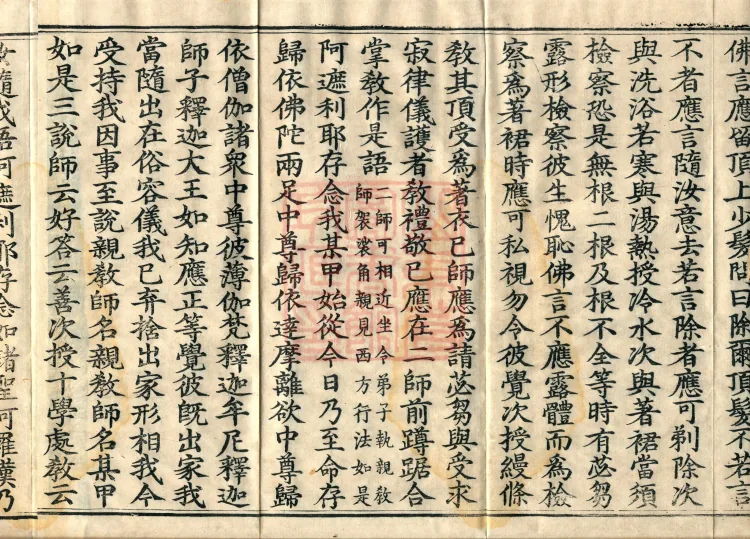 佛言應留頂上少髮問曰除爾頂髮不若言
不者應言隨汝意去若言除者應可剃除次
與洗浴若寒與湯熱授冷水次與著裙當須
檢察恐是無根二根及根不全等時有苾芻
露形檢察彼生愧恥佛言不應露體而為檢
察為著裙時應可私視勿令彼覺次授縵條
教其頂受為著衣已師應為請苾芻與受求
寂律儀護者教禮敬已應在二師前蹲踞合
掌教作是語二師可相近坐令弟子執親教
師袈裟角親見西方行法如是
阿遮利耶存念我某甲始從今日乃至命存
歸依佛陀兩足中尊歸依達摩離欲中尊歸
依僧伽諸衆中尊彼薄伽梵釋迦牟尼釋迦
師子釋迦大王如知應正等覺彼既出家我
當隨出在俗容儀我已弃捨出家形相我今
受持我因事至說親教師名親教師名某甲
如是三說師云好荅云善次授十學處教云
汝隨我語阿遮利耶存念如諸聖阿羅漢乃